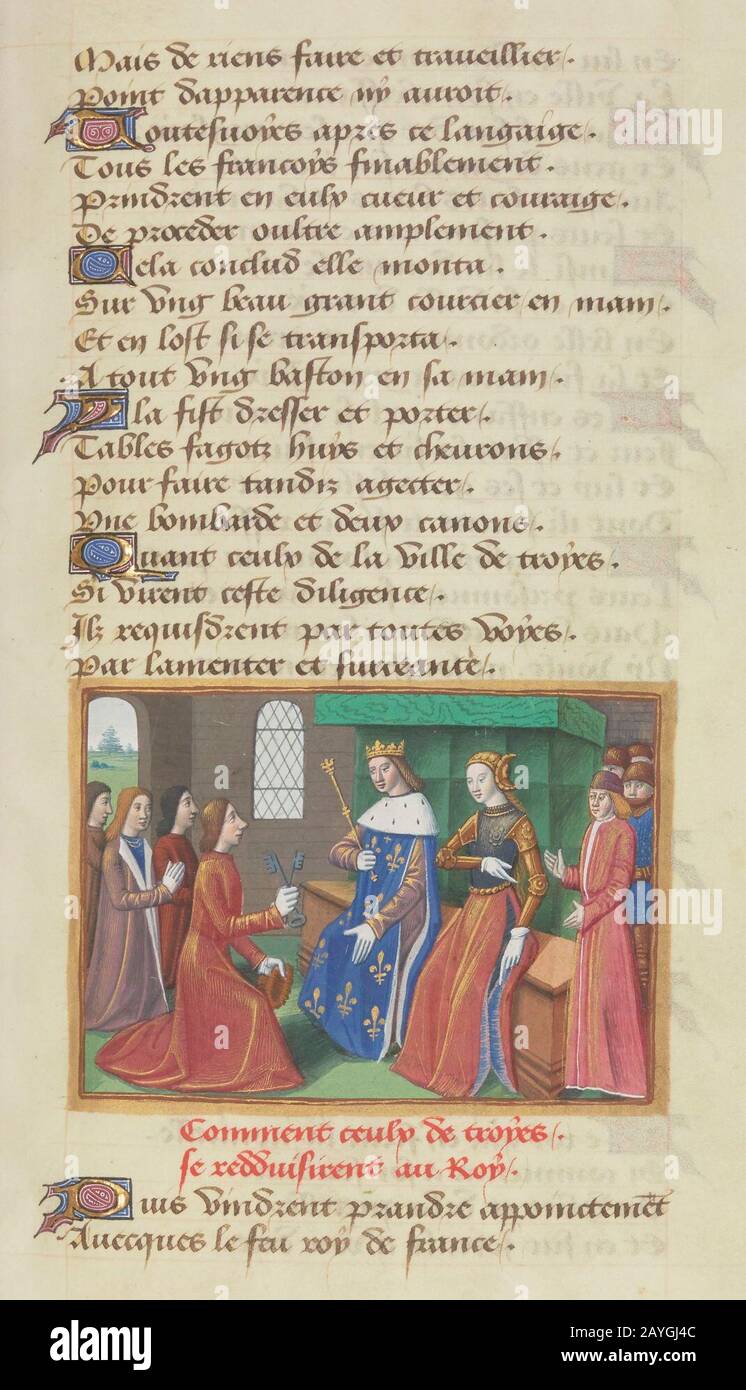 Mais de riens faire et traueillier.
Point dapparence ny auroit.
Toutesuoyes apres ce langaige.
Tous les francoys finablement.
Prindrent en eulx cueur et couraige.
De proceder oultre amplement.
Cela conclud elle monta.
Sur vng beau grant courcier en main.
Et en lost si se transporta.
A tout vng baston en sa main.
Illa fist dresser et porter.
Tables fagotz huys et cheurons.
Pour faire tandiz agecter.
Vne bombarde et deux canons.
Quant ceulx de la ville de troyes.
Si virent ceste diligence.
Ilz requisdrent par toutes voyes.
Par lamenter et surceante.
Comment ceulx de troyes.
se redduisirent au Roy.
Puis vindrent prandre appoinctemẽt
Auecques le feu roy de france.
alamy
alamy
alamy
Image ID: 2AYGJ4C
www.alamy.com